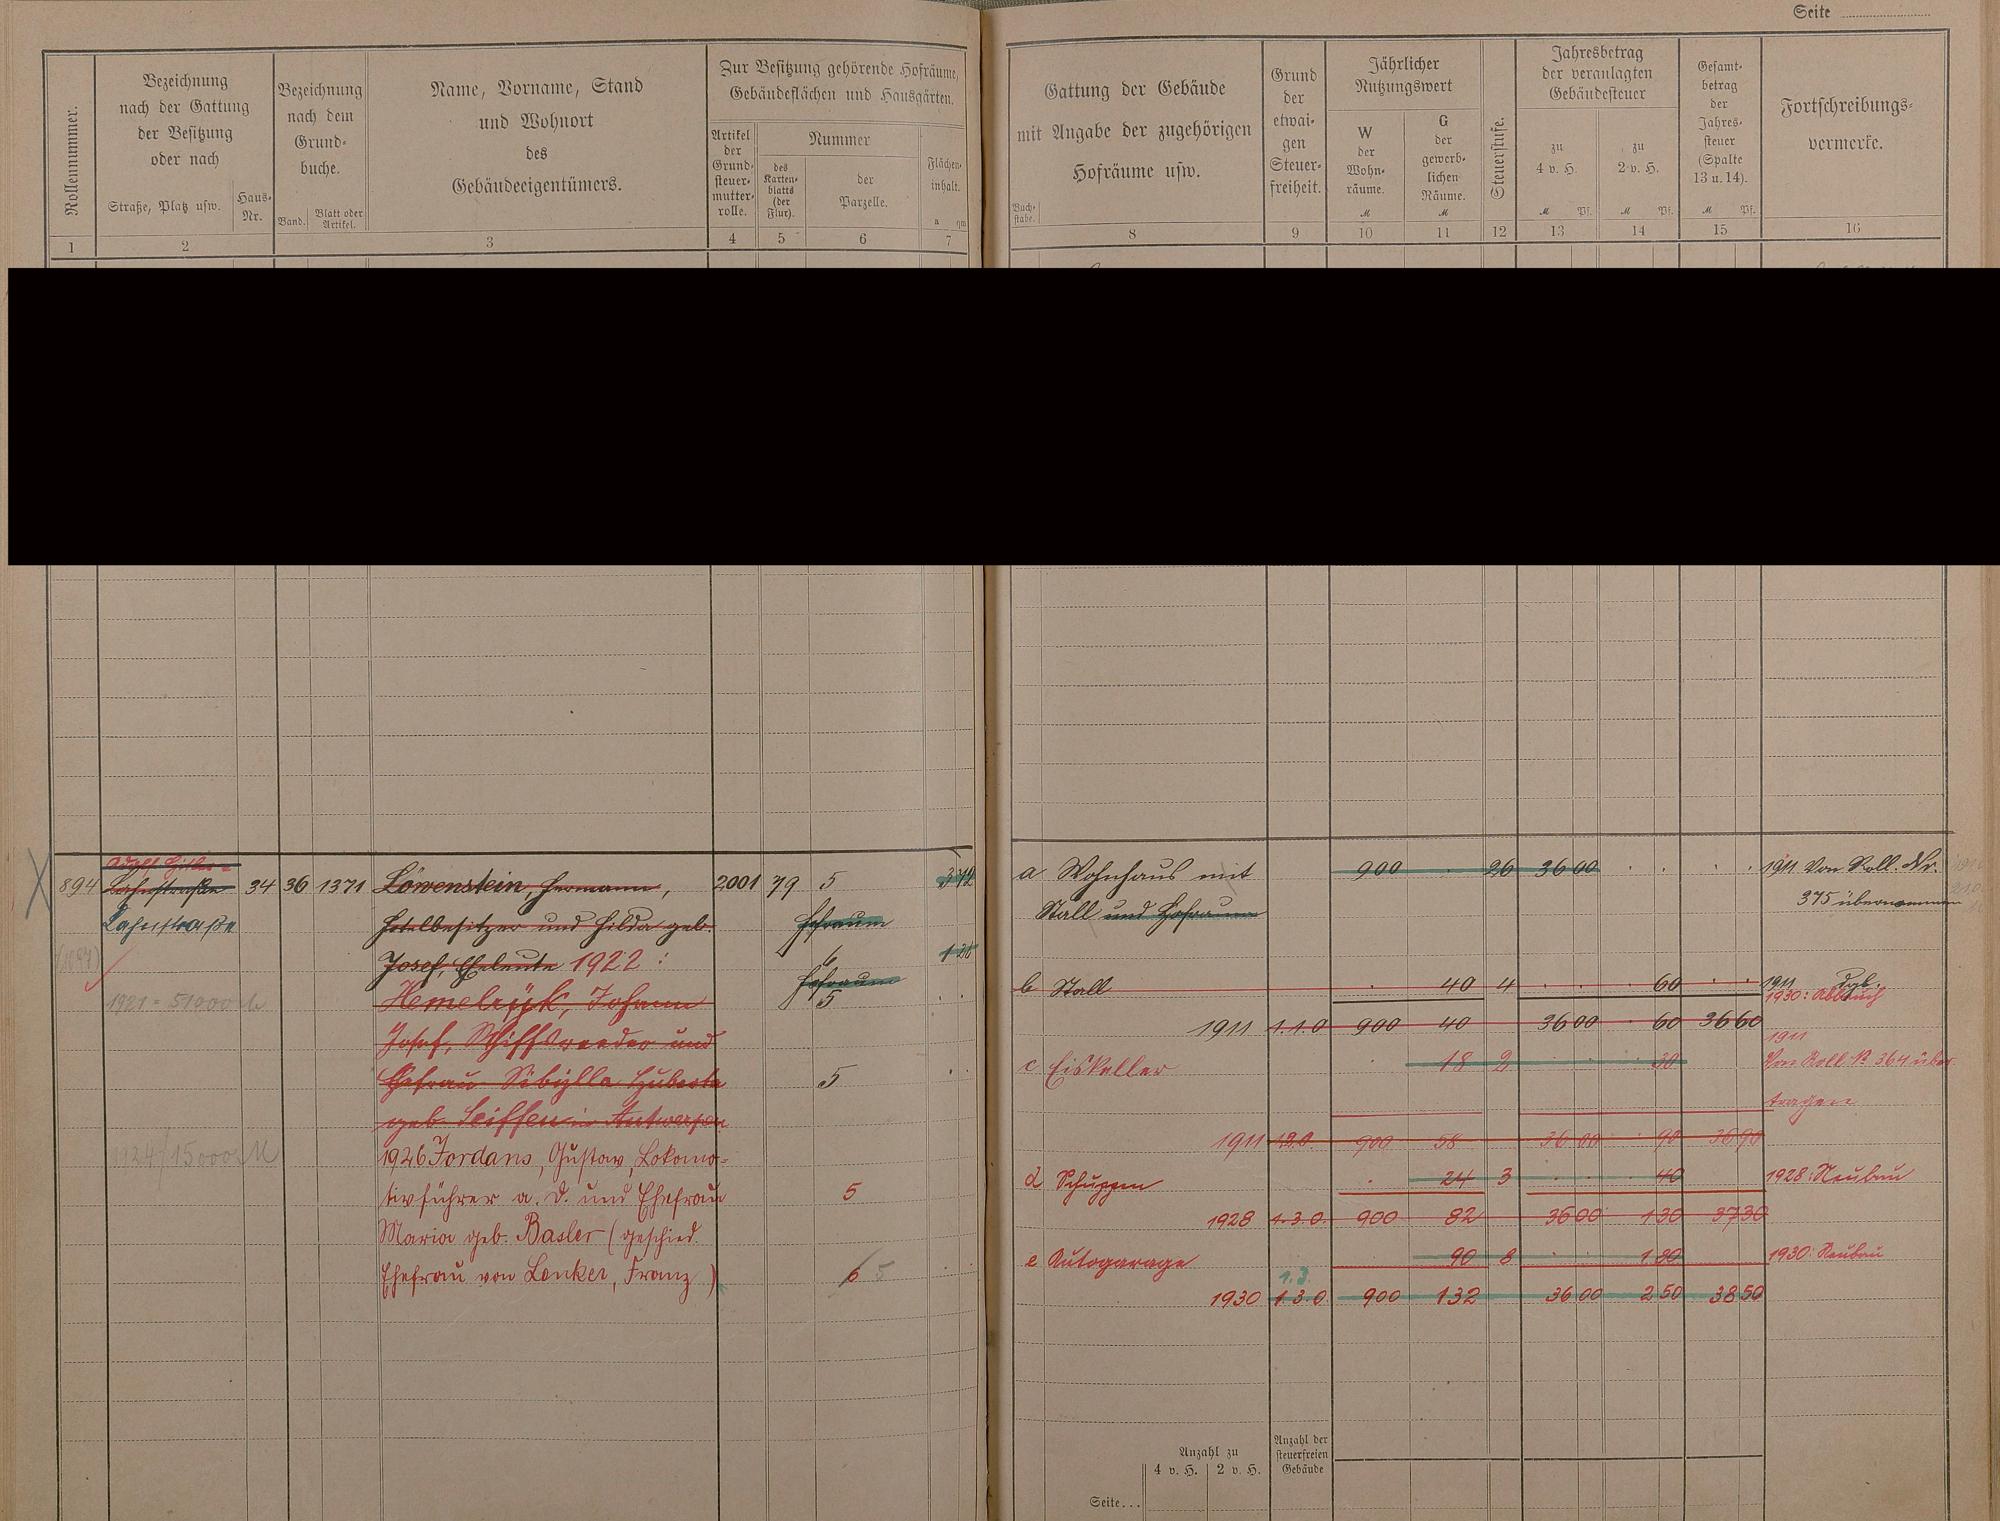 Seite
Rollennummer.
Bezeichnung
nach der Gattung
der Besitzung
oder nach
Straße, Platz usw.
Haus-
Nr.
Bezeichnung
nach dem
Grund-
buche.
Band.
Blatt oder
Artikel.
Name, Vorname, Stand
und Wohnort
des
Gebäudeeigentümers.
Zur Besitzung gehörende Hofräume,
Gebäudeflächen und Hausgärten.
Artikel
der
Grund-
steuer-
mutter-
rolle.
Nummer
des
Karten-
blatts
(der
Flur).
der
Parzelle.
Flächen-
inhalt.
a qm
1 2 3 4 5 6 7
Gattung der Gebäude
mit Angabe der zugehörigen
Hofräume usw.
Buch-
stabe.
Grund
der
etwai-
gen
Steuer-
freiheit.
Jährlicher
Nutzungswert
W
der
Wohn-
räume.
M
G
der
gewerb-
lichen
Räume.
M
Steuerstufe.
Jahresbetrag
der veranlagten
Gebäudesteuer
zu
4 v. H.
M Pf.
zu
2 v. H.
M Pf.
Gesamt-
betrag
der
Jahres-
steuer
(Spalte
13 u. 14).
M Pf.
Fortschreibungs-
vermerke.
8 9 10 11 12 13 14 15 16
Adolf Hitler-
894 Lahnstraße 34 36 1371 Löwenstein, Hermann, 2001 79 5 372
Lahnstraße
Hotelbesitzer und Hilda geb. Hofraum
Josef, Eheleute 1922: 6
Hofraum
1921 = 51000 M
Hemelryk, Johann 5
Josef, Schiffsreeder und
Ehefrau Sibylla Huberta 5
geb. Seiffen in Antwerpen
1924/15000 M
1926 Jordans, Gustav, Lokomo-
tivführer a. D. und Ehefrau 5
Maria geb. Basler (geschied.
Ehefrau von Lenker, Franz) 6 5
a Wohnhaus mit 900 26 36 00 1911 Von Roll. Nr.
Stall und Hofraum 375 übernommen
b Stall 40 4 60 1911 Dgl.
1930: Abbruch
1911 1.1.0 900 40 36 00 60 36 60
1911
c Eiskeller 18 2 30 Von Roll. No 364 über-
tragen
1911 1.2.0 900 58 36 00 90 36 90
d Schuppen 24 3 40 1928: Neubau
1928 1.3.0. 900 82 36 00 1 30 37 30
e Autogarage 90 8 1 80 1930: Neubau
1.3.
1930 1.3.0 900 132 36 00 2 50 38 50
Anzahl zu
4 v. H. 2 v. H.
Anzahl der
steuerfreien
Gebäude
Seite...